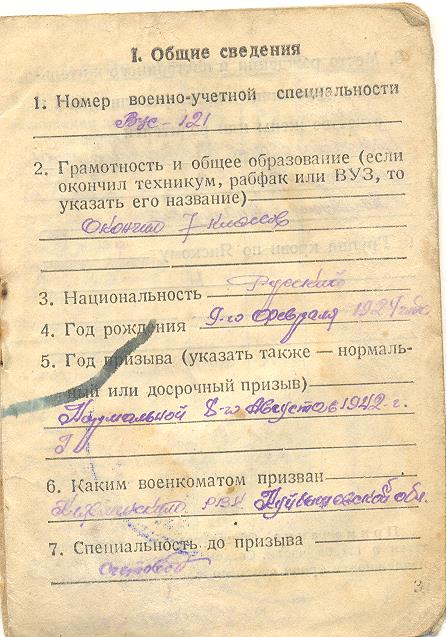 I. Общие сведения
1. Номер военно-учетной специальности
Вус-121
2. Грамотность и общее образование (если
окончил техникум, рабфак или ВУЗ, то
указать его название)
Окончил 7 классов
3. Национальность Русский
4. Год рождения 9-го февраля 1924 года
5. Год призыва (указать также — нормаль-
ный или досрочный призыв)
Нормальной 8-го Августа 1942-г.
6. Каким военкоматом призван
РВК Куйбышевской обл.
7. Специальность до призыва
Счетовод
3